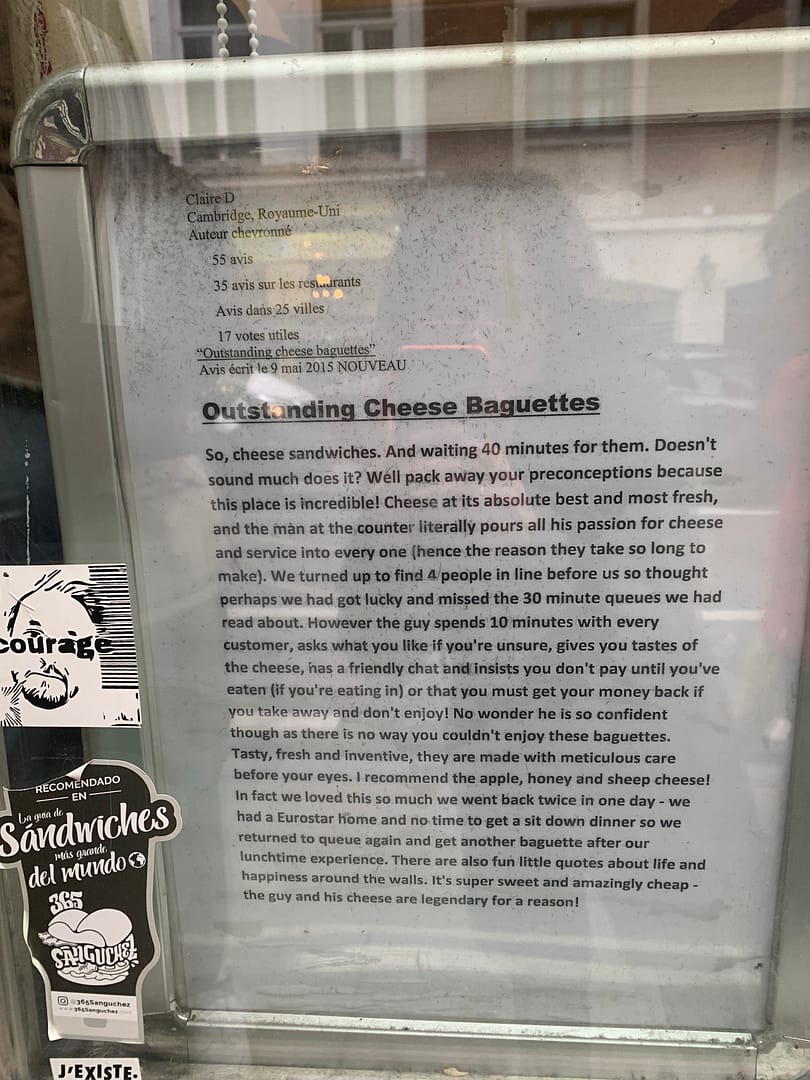 Claire D
Cambridge, Royaume-Uni
Auteur chevronné
55 avis
35 avis sur les restaurants
Avis dans 25 villes
17 votes utiles
“Outstanding cheese baguettes”
Avis écrit le 9 mai 2015 NOUVEAU
Outstanding Cheese Baguettes
So, cheese sandwiches. And waiting 40 minutes for them. Doesn't
sound much does it? Well pack away your preconceptions because
this place is incredible! Cheese at its absolute best and most fresh,
and the man at the counter literally pours all his passion for cheese
and service into every one (hence the reason they take so long to
make). We turned up to find 4 people in line before us so thought
perhaps we had got lucky and missed the 30 minute queues we had
read about. However the guy spends 10 minutes with every
customer, asks what you like if you're unsure, gives you tastes of
the cheese, has a friendly chat and insists you don't pay until you've
eaten (if you're eating in) or that you must get your money back if
you take away and don't enjoy! No wonder he is so confident
though as there is no way you couldn't enjoy these baguettes.
Tasty, fresh and inventive, they are made with meticulous care
before your eyes. I recommend the apple, honey and sheep cheese!
In fact we loved this so much we went back twice in one day - we
had a Eurostar home and no time to get a sit down dinner so we
returned to queue again and get another baguette after our
lunchtime experience. There are also fun little quotes about life and
happiness around the walls. It's super sweet and amazingly cheap -
the guy and his cheese are legendary for a reason!
courage
RECOMENDADO
EN
La guía de
Sándwiches
más grande
del mundo
365
SANGUCHEZ
@365Sanguchez
www.365Sanguchez.com
J'EXISTE.